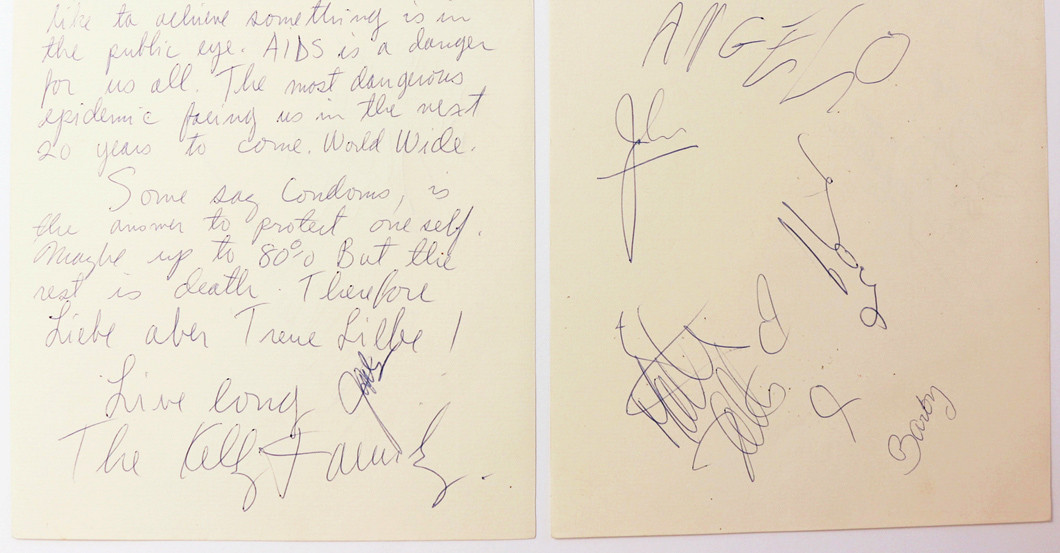 like to achieve something is in
the public eye. AIDS is a danger
for us all. The most dangerous
epidemic facing us in the next
20 years to come. World Wide.
Some say Condoms, is
the answer to protect one self.
Maybe up to 80% But the
rest is death. Therefore
Liebe aber Treue Liebe!
Live long
The Kelly Family.
ANGELO
John
Barby